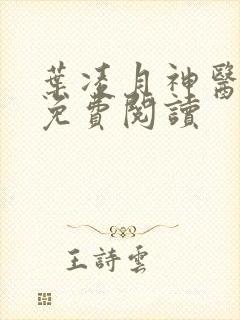 葉淩月神醫
免費閱讀
王詩雲